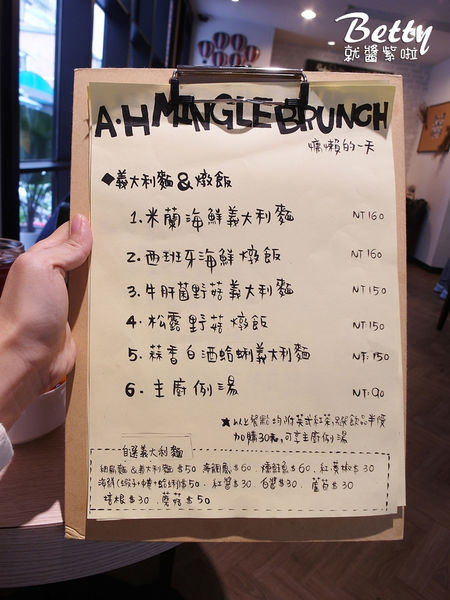 Betty
就醬紫啦
A·H MINGLE BRUNCH
慵懶的一天
◆義大利麵&燉飯
1.米蘭海鮮義大利麵 NT160
2.西班牙海鮮燉飯 NT160
3.牛肝菌野菇義大利麵 NT150
4.松露野菇燉飯 NT150
5.蒜香白酒蛤蜊義大利麵 NT:150
6.主廚例湯 NT:90
★以上餐點均附英式紅茶,只飲品半價
加購30元,可享主廚例湯
自選義大利麵
細扁麵&義大利麵$50 海鋼鳳$60 燻鮭魚$60 紅黃椒$30
海鮮(蝦子+中卷+蛤蜊)$50 紅醬$30 白醬$30 蘆筍$30
培根$30 蘑菇$50